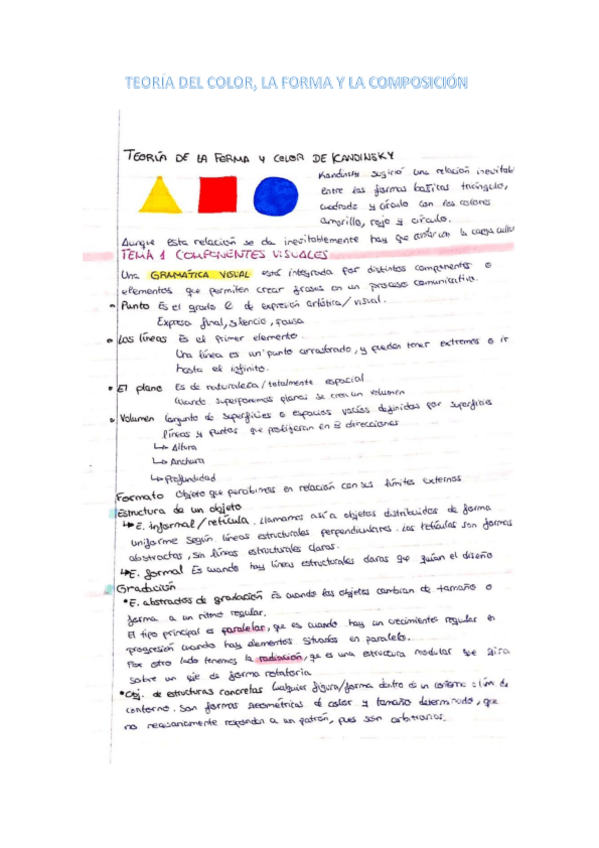 TEORÍA DEL COLOR, LA FORMA Y LA COMPOSICIÓN
TEORÍA DE LA FORMA Y COLOR DE KANDINSKY
Kandinsky sugirió una relación inevitab
entre las formas básicas triángulo,
cuadrado y círculo con los colores
amarillo, rojo y círculo.
Aunque esta relación se da inevitablemente hay que la carga cultur
TEMA 1 COMPONENTES VISUALES
Una GRAMÁTICA VISUAL está integrada por distintos componentes o
elementos que permiten crear frases en un proceso comunicativo.
Punto Es el grado 0 de expresión artística/visual.
Expresa final, silencio, pausa
Las líneas Es el primer elemento.
Una línea es un punto arrastrado, y pueden tener extremos o ir
hasta el infinito.
El plano Es de naturaleza/totalmente espacial
Cuando superponemos planos se crea un volumen
Volumen Conjunto de superficies o espacios vacíos definidos por superficies
líneas y puntos que en 3 direcciones
↳ Altura
↳ Anchura
↳ Profundidad
Formato Objeto que percibimos en relación con sus límites externos
Estructura de un objeto
↳ E. informal/retícula. Llamamos así a objetos distribuidos de forma
uniforme según líneas estructurales perpendiculares. Las retículas son formas
abstractas, sin líneas estructurales claras.
↳ E. formal Es cuando hay líneas estructurales claras que guían el diseño
Gradación
• E. abstractos de gradación Es cuando los objetos cambian de tamaño o
forma a un ritmo regular.
El tipo principal es paralelar, que es cuando hay un crecimiento regular en
progresión cuando hay elementos situados en paralelo.
Por otro lado tenemos la radiación, que es una estructura modular que gira
sobre un eje de forma rotatoria.
• Obj. de estructuras concretas Cualquier figura/forma dentro de un o lím de
contorno. Son formas geométricas de color y tamaño determinado, que
no necesariamente responden a un patrón, pues son arbitrarios.